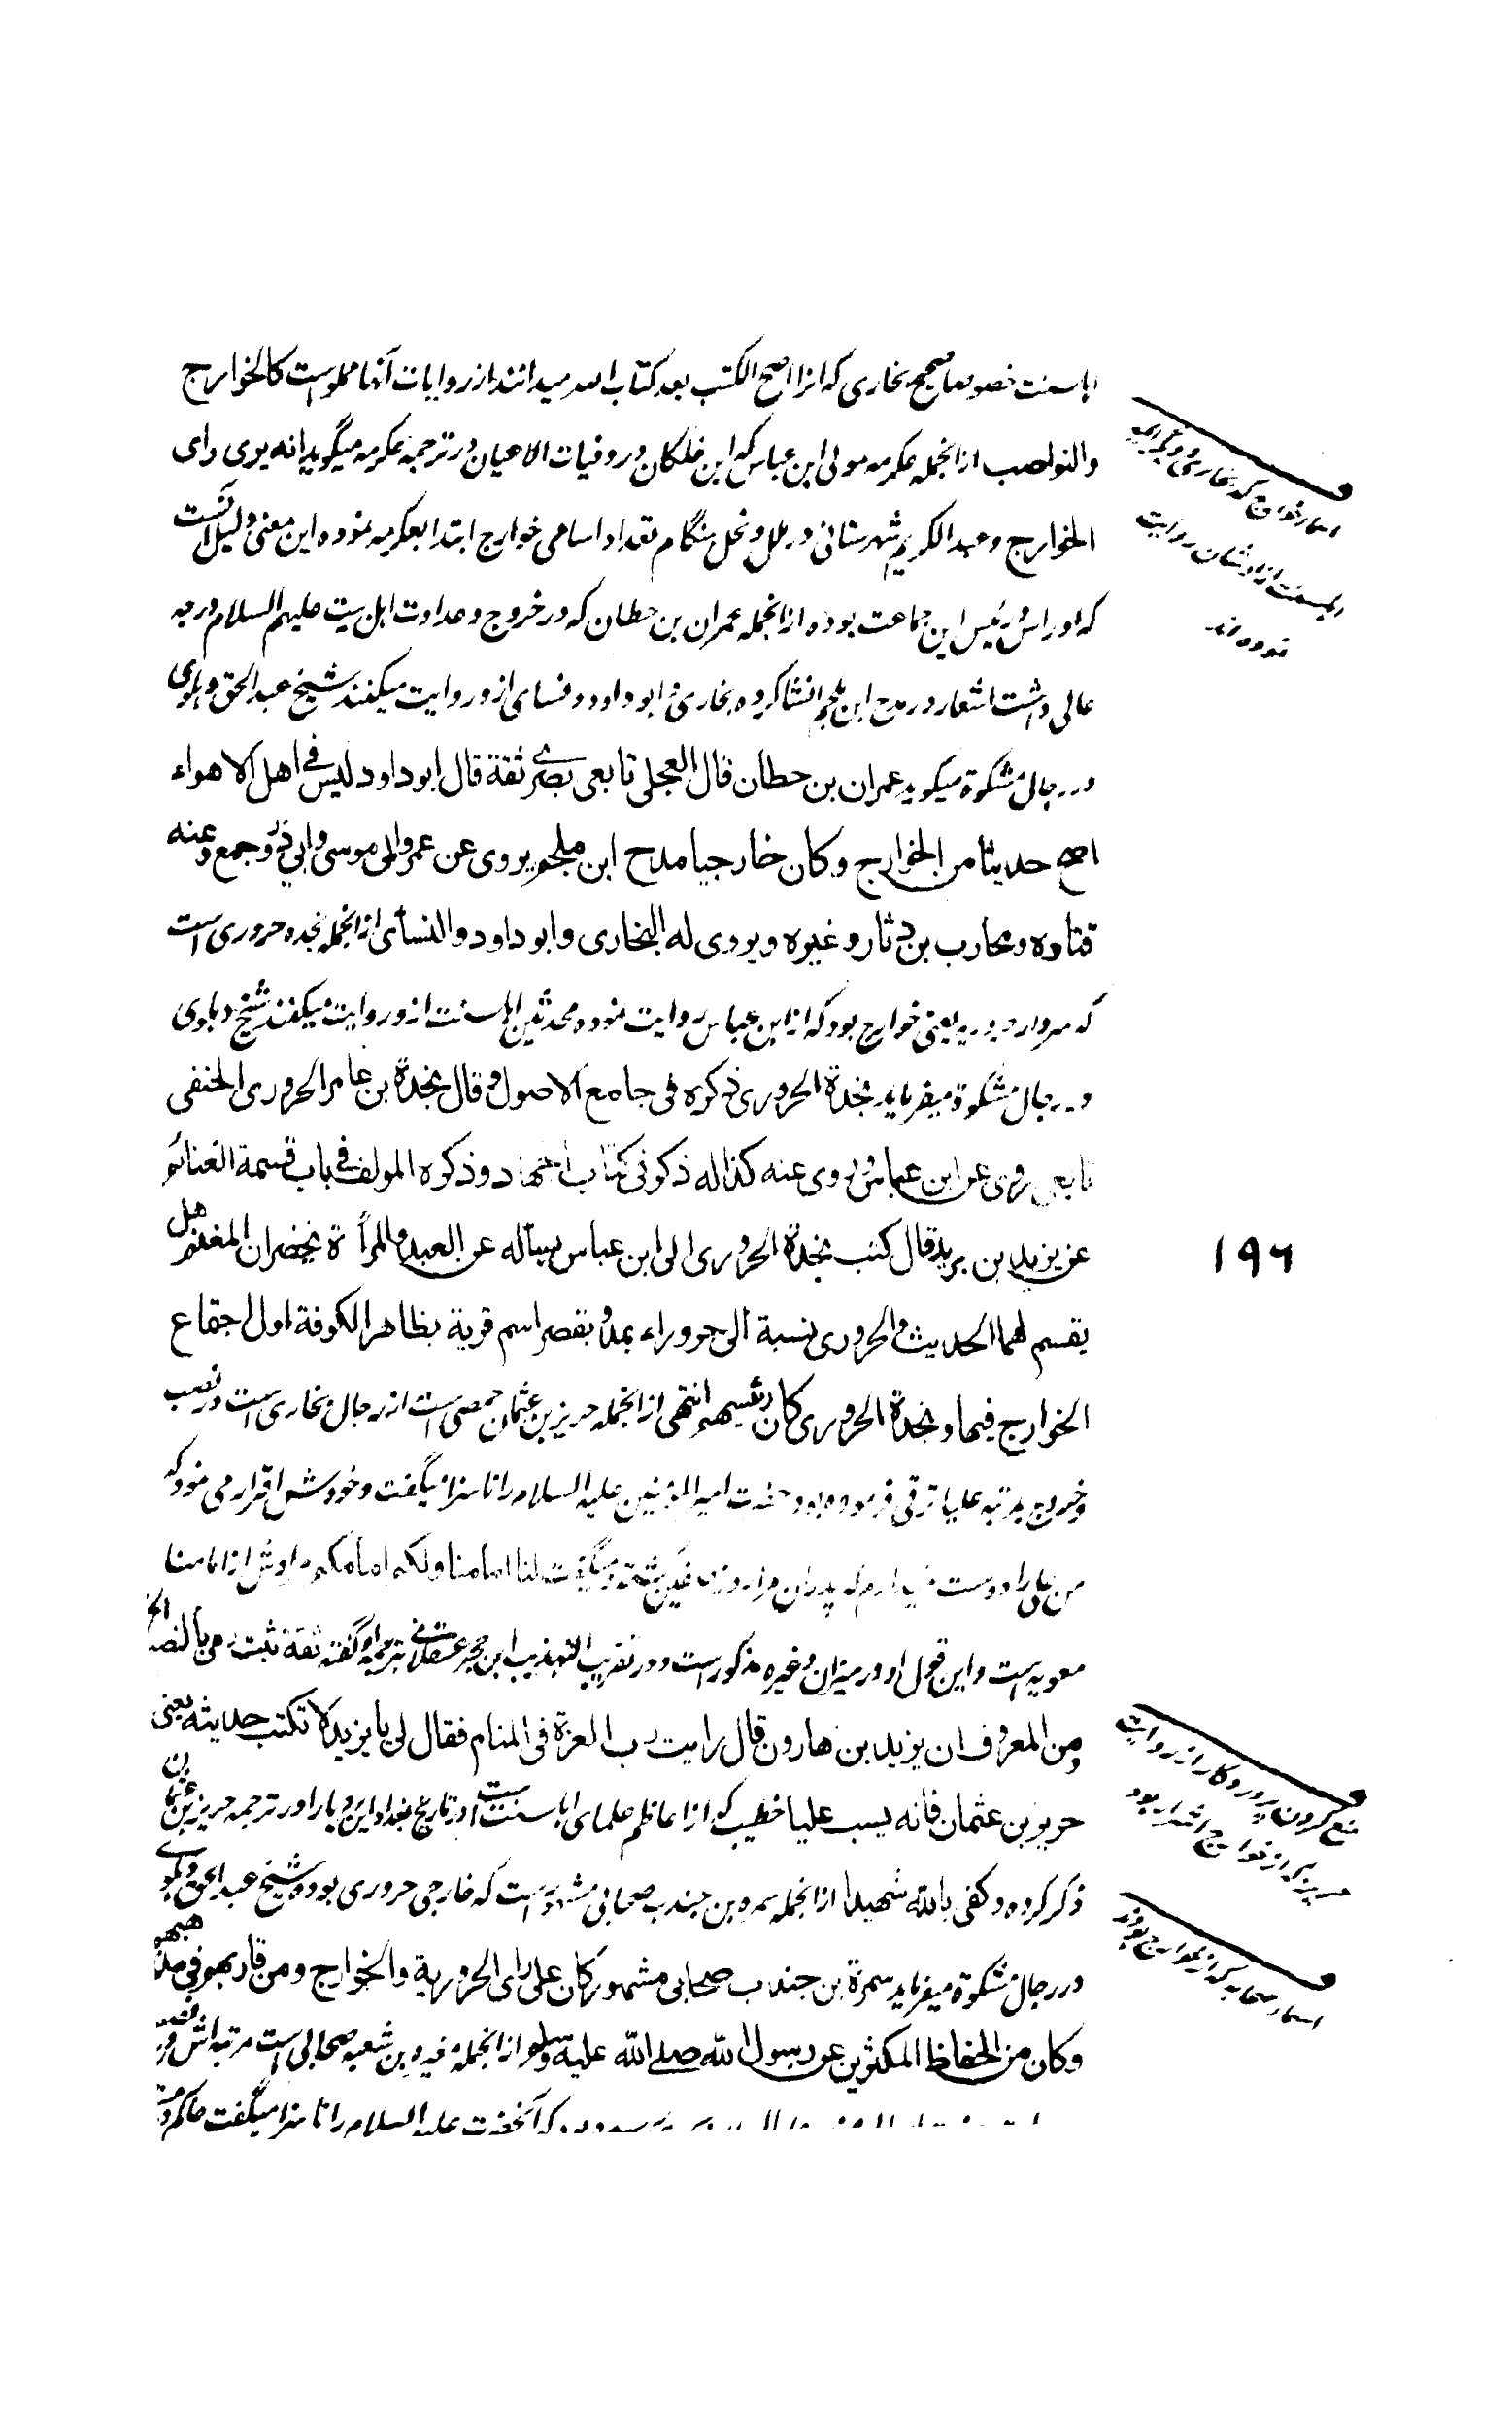 اہلسنت خصوصا صحیح بخاری کہ انرا اصح الکتب بعد کتاب اللہ میدانند از روایات آنها مملوست کالخوارج
والنواصب ازانجملہ عکرمہ مولی ابن عباس کہ ابن خلکان در وفیات الاعیان در ترجمہ عکرمہ میگوید انہ یری رای
الخوارج وعبد الکریم شہرستانی در ملل ونحل ہنگام تعداد اسامی خوارج ابتدا بعکرمہ نمودہ این معنی دلیل آنست
کہ او راس ورئیس این جماعت بودہ ازانجملہ عمران بن حطان کہ در خروج وعداوت اہل بیت علیہم السلام درجہ
عالی داشت اشعار در مدح ابن ملجم انشا کردہ بخاری وابو داود ونسای ازو روایت میکنند شیخ عبد الحق دہلوی
در رجال مشکوۃ میگوید عمران بن حطان قال العجلی تابعی بصری ثقة قال ابو داود لیس فی اهل الاهواء
اصح حدیثا من الخوارج وکان خارجیا مدح ابن ملجم یروی عن عمر وابی موسی وابی ذر وجمع وعنه
قتاده ومحارب بن دثار وغیره ویروی له البخاری وابو داود والنسائی ازانجملہ نجدہ حروری است
کہ سردار حروریہ یعنی خوارج بود کہ از ابن عباس روایت نمودہ محدثین اہلسنت ازو روایت میکنند شیخ دہلوی
در رجال مشکوۃ میفرماید نجدة الحروری ذکره فی جامع الاصول وقال نجدة بن عامر الحروری الحنفی
تابعی روی عن ابن عباس وروی عنه کذا له ذکر فی کتاب الجهاد وذکره المولف فی باب قسمة الغنائم
عن یزید بن یرید قال کتب نجدة الحروری الی ابن عباس یساله عن العبد والمرأة یحضران المغنم هل
یقسم لهما الحدیث والحروری نسبة الی حروراء بمد وبقصر اسم قریة بظاهر الکوفة اول اجتماع
الخوارج فیها ونجدة الحروری کان رئیسهم انتهی ازانجملہ حریز بن عثمان حمصی است از رجال بخاری است در نصب
وخروج بمرتبہ علیا ترقی فرمودہ بود حضرت امیر المؤمنین علیہ السلام را ناسزا میگفت وخودش اقرار می نمود کہ
من علی را دوست نمیدارم کہ پدران مرا روز صفین کشتہ ومیگفت لنا امامنا ولکم امامکم مرادش از امامنا
معویہ است واین قول او در میزان وغیرہ مذکور است ودر تقریب التہذیب ابن حجر عسقلانی بترجمہ او گفتہ ثقة ثبت رمی بالنصب الخ
ومن المعروف ان یزید بن هارون قال رایت رب العزة فی المنام فقال لی یا یزید لا تکتب حدیثه یعنی
حریز بن عثمان فانه یسب علیا خطیب کہ از اعاظم علمای اہلسنت است در تاریخ بغداد این رویا را در ترجمہ حریز بن عثمان
ذکر کردہ وکفی بالله شهیدا ازانجملہ سمرہ بن جندب صحابی مشہورست کہ خارجی حروری بودہ شیخ عبد الحق دہلوی
در رجال مشکوۃ میفرماید سمرة بن جندب صحابی مشهور کان علی رای الحروریة والخوارج ومن قاربهم فی مذهبهم
وکان من الحفاظ المکثرین عن رسول الله صلے الله علیه وسلم ازانجملہ مغیرہ بن شعبہ صحابی است مرتبہ اش در نصب
کہ آنحضرت علیہ السلام را ناسزا میگفت حاکم در
اسماء خوارج کہ بخاری ودیگر ایمہ
اہلسنت از ایشان روایت
نمودہ اند
۱۹۶
منع کردن پروردگار از روایت
حریز کہ از خوارج اشد بود
اسماء صحابہ کہ از خوارج بودند